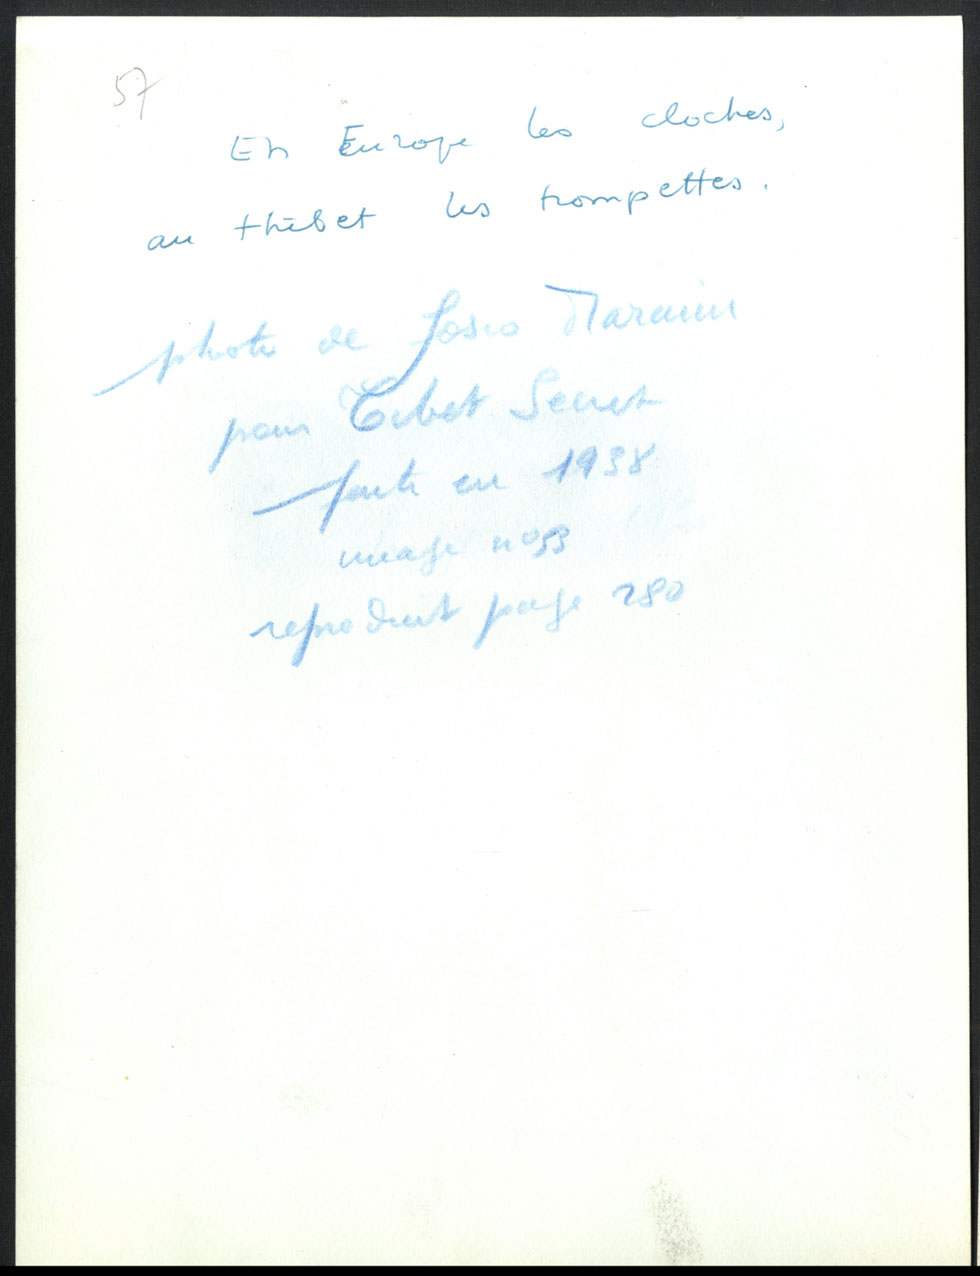 57
En Europe les cloches,
au thibet les trompettes.
photo de Fosco Maraini
pour Tibet Secret
faite en 1938
image n°53
reproduit page 280